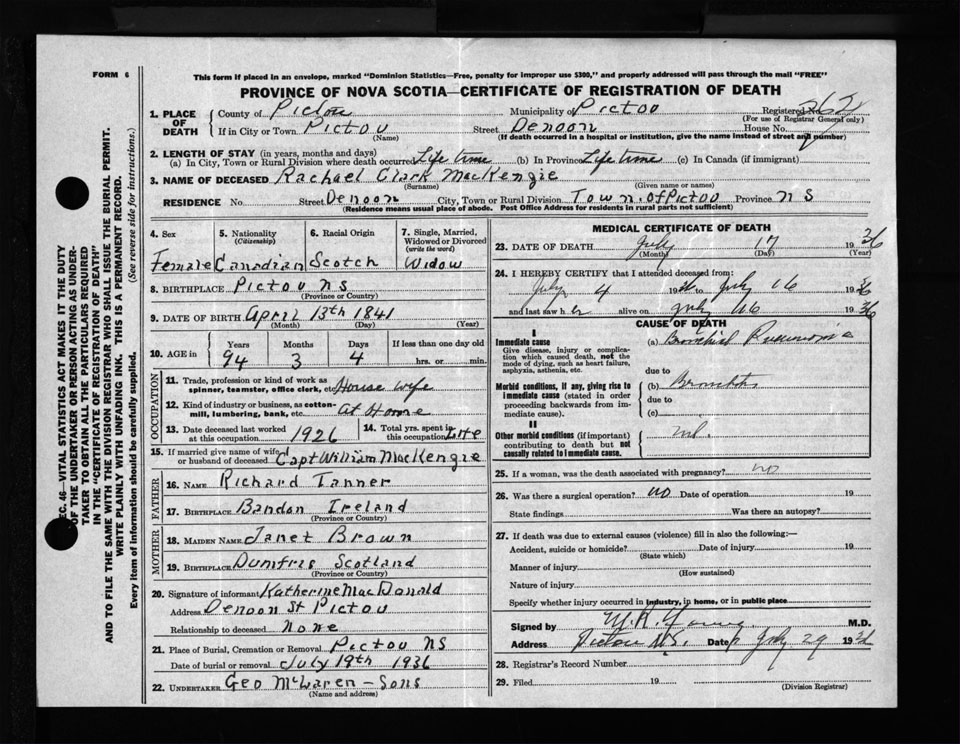 FORM 6
This form if placed in an envelope, marked "Dominion Statistics—Free, penalty for improper use $300," and properly addressed will pass through the mail "FREE"
PROVINCE OF NOVA SCOTIA—CERTIFICATE OF REGISTRATION OF DEATH
1. PLACE OF DEATH
County of Pictou Municipality of Pictou Registered No. 262
(For use of Registrar General only)
If in City or Town Pictou Street Denoon House No.
(Name) (If death occurred in a hospital or institution, give name instead of street and number)
2. LENGTH OF STAY (in years, months and days)
(a) In City, Town or Rural Division where death occurred Life time (b) In Province Life time (c) In Canada (if immigrant)
3. NAME OF DECEASED Rachael Clark MacKenzie
(Surname) (Given name or names)
RESIDENCE No. Street Denoon City, Town or Rural Division Town. of Pictou Province N S
(Residence means usual place of abode. Post Office Address for residents in rural parts not sufficient)
4. Sex Female
5. Nationality (Citizenship) Canadian
6. Racial Origin Scotch
7. Single, Married, Widowed or Divorced (write the word) Widow
8. BIRTHPLACE Pictou NS
(Province or Country)
9. DATE OF BIRTH April 13th 1841
(Month) (Day) (Year)
10. AGE in Years Months Days If less than one day old
94 3 4 hrs. or min.
OCCUPATION
11. Trade, profession or kind of work as spinner, teamster, office clerk, etc. House wife
12. Kind of industry or business, as cotton-mill, lumbering, bank, etc. At Home
13. Date deceased last worked at this occupation 1926
14. Total yrs. spent in this occupation Life
15. If married give name of wife or husband of deceased Capt William MacKenzie
FATHER
16. NAME Richard Tanner
17. BIRTHPLACE Bandon Ireland
(Province or Country)
MOTHER
18. MAIDEN NAME Janet Brown
19. BIRTHPLACE Dumfris Scotland
(Province or Country)
20. Signature of informant Katherine MacDonald
Address Denoon St Pictou
Relationship to deceased None
21. Place of Burial, Cremation or Removal Pictou NS
Date of burial or removal July 19th 1936
22. UNDERTAKER Geo McLaren – Sons
(Name and address)
MEDICAL CERTIFICATE OF DEATH
23. DATE OF DEATH July 17 1936
(Month) (Day) (Year)
24. I HEREBY CERTIFY that I attended deceased from:
July 4 1936 to July 16 1936
and last saw her alive on July 16 1936
CAUSE OF DEATH
I
Immediate cause
Give disease, injury or complication which caused death, not the mode of dying, such as heart failure, asphyxia, asthenia, etc.
(a) Bronchial Pneumonia
due to
Morbid conditions, if any, giving rise to immediate cause (stated in order proceeding backwards from immediate cause).
(b) Bronchitis
due to
(c)
II
Other morbid conditions (if important) contributing to death but not causally related to immediate cause.
nil.
25. If a woman, was the death associated with pregnancy? no
26. Was there a surgical operation? no Date of operation 19
State findings Was there an autopsy?
27. If death was due to external causes (violence) fill in also the following:—
Accident, suicide or homicide? Date of injury 19
(State which)
Manner of injury
(How sustained)
Nature of injury
Specify whether injury occurred in industry, in home, or in public place
Signed by M.D.
Address Pictou N.S. Date July 29 1936
28. Registrar's Record Number
29. Filed 19
(Division Registrar)
SEC. 46—VITAL STATISTICS ACT MAKES IT THE DUTY
OF THE UNDERTAKER OR PERSON ACTING AS UNDER-
TAKER TO OBTAIN ALL THE PARTICULARS REQUIRED
IN THE "CERTIFICATE OF REGISTRATION OF DEATH"
AND TO FILE THE SAME WITH THE DIVISION REGISTRAR WHO SHALL ISSUE THE BURIAL PERMIT.
WRITE PLAINLY WITH UNFADING INK. THIS IS A PERMANENT RECORD.
Every item of information should be carefully supplied. (See reverse side for instructions.)